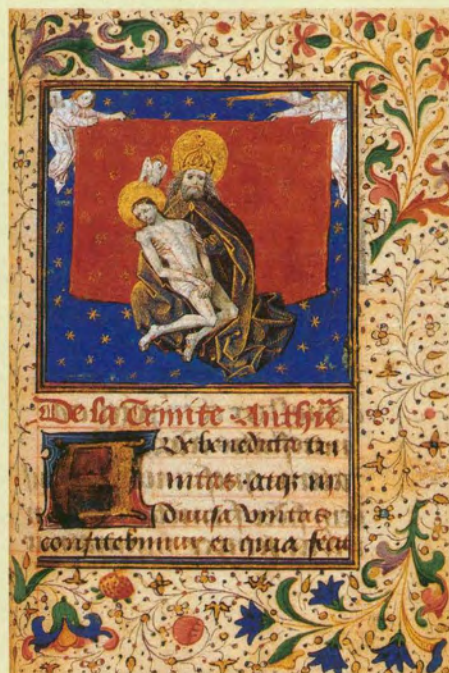 De la Trinite Anthie
AVe benedicta tri
nitas. atqz in
diuisa vnitas
confitebimur ei quia feci